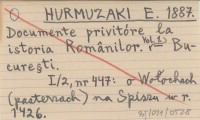 HURMUZAKI E. 1887.
Documente privitóre la
istoria Românilor. Vol. I
București.
I/2, nr 447: o Wołochach
(pasterzach) na Spiszu w r.
1426.
95/034/0528